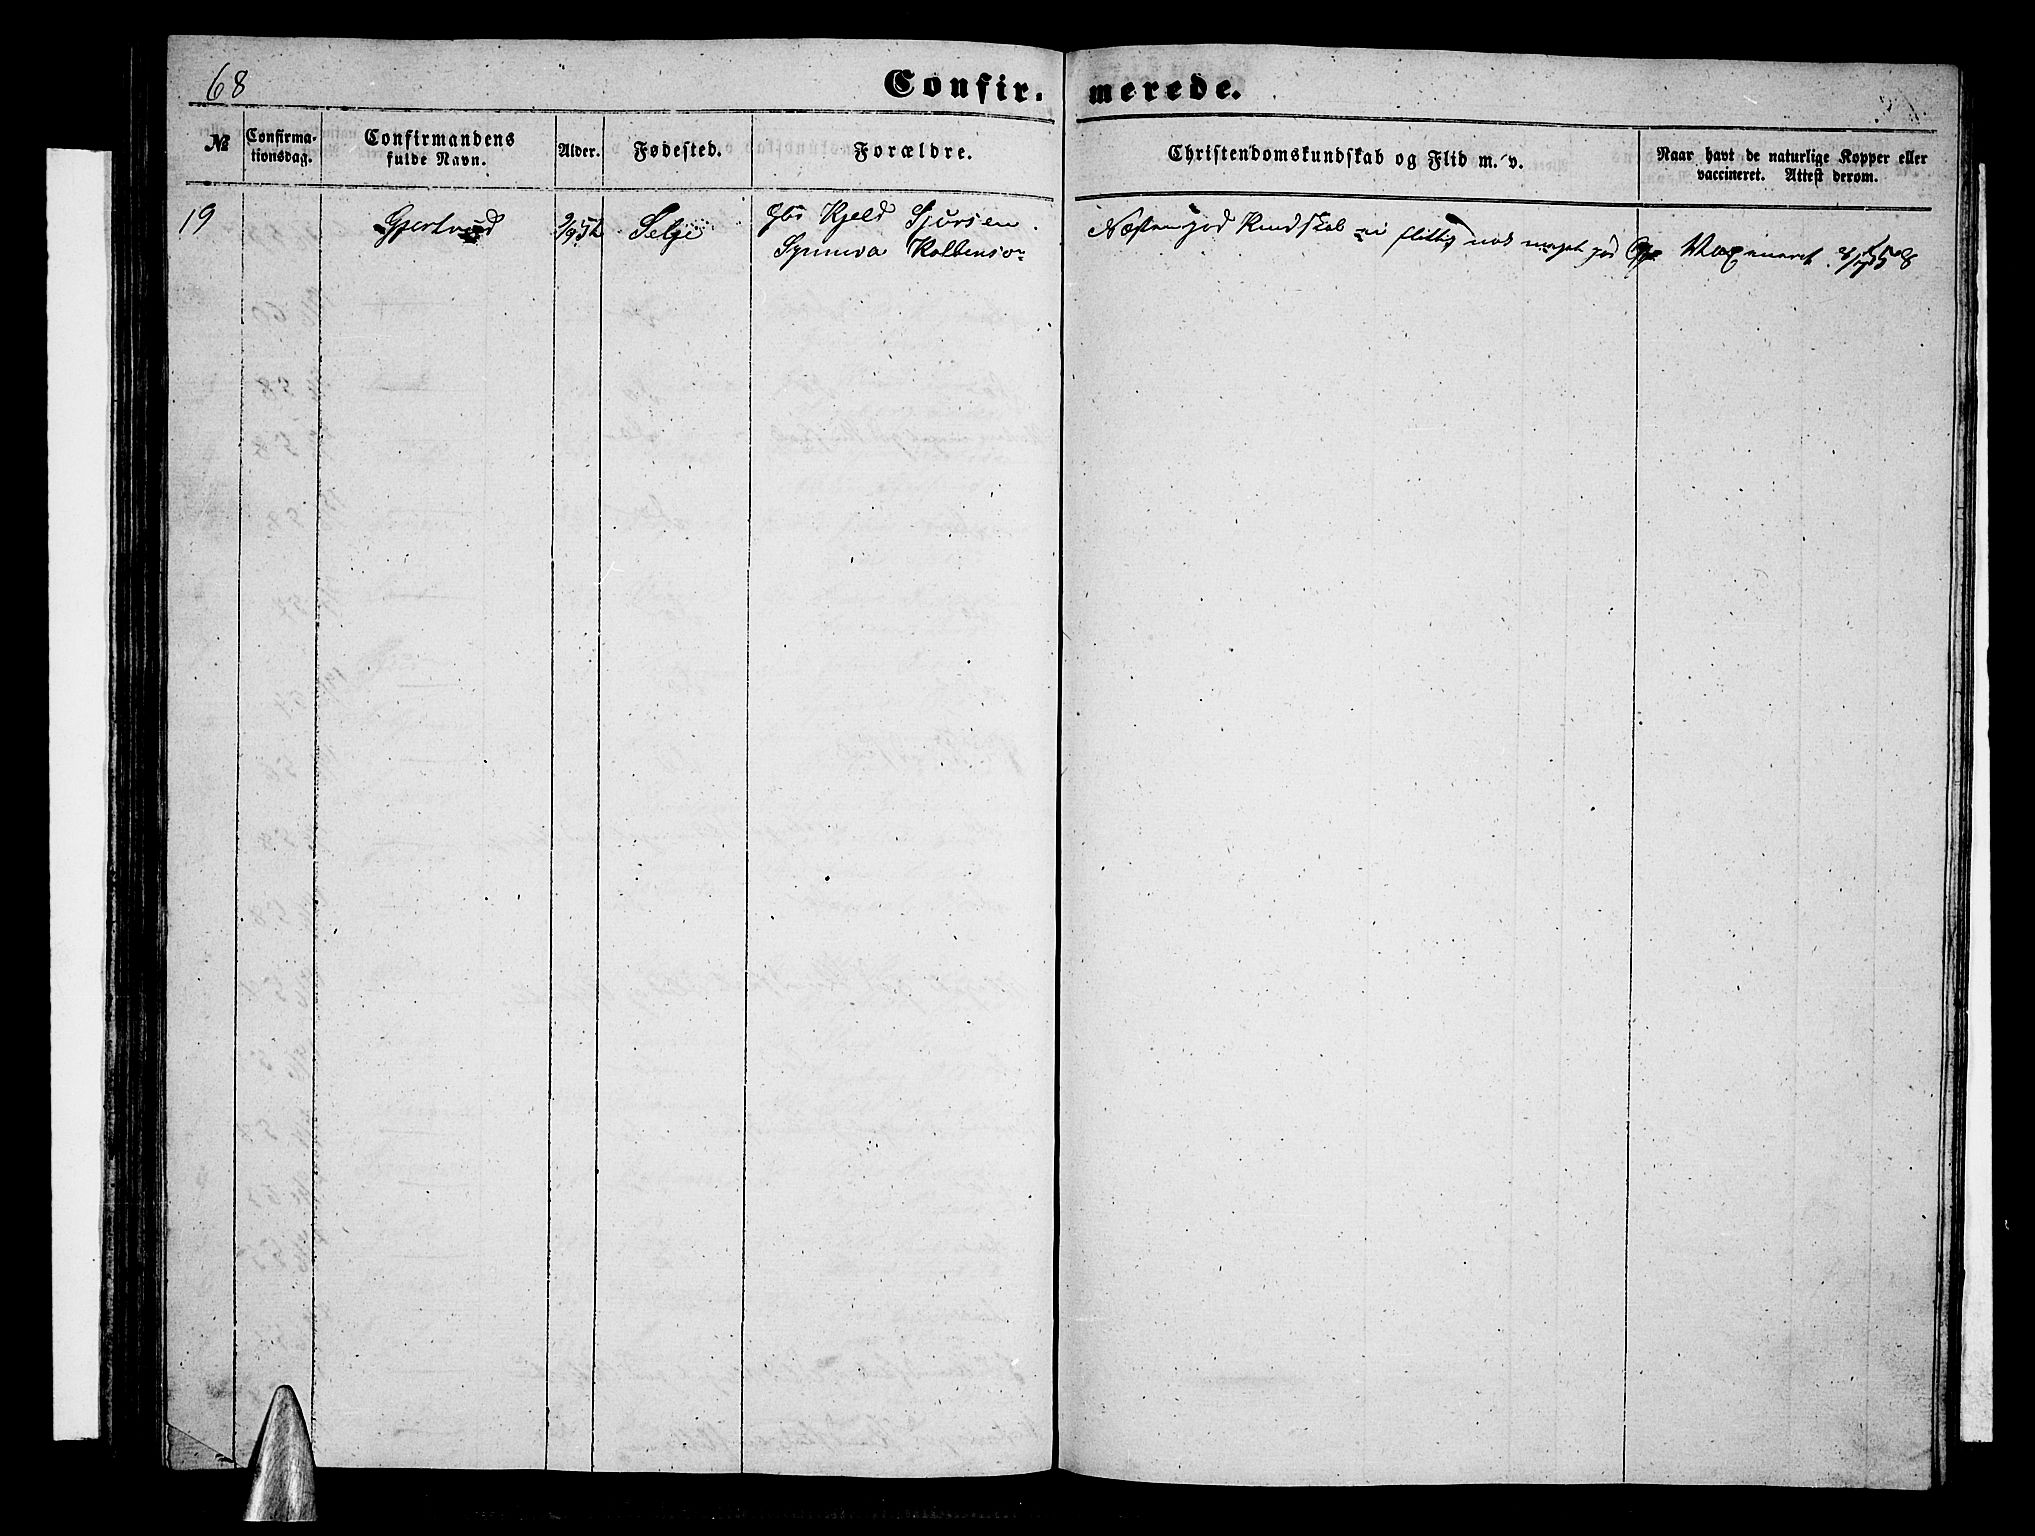 68
Confir- merede.
№ Confirmationsdag. Confirmandens fulde Navn. Alder. Fødested. Forældre. Christendomskundskab og Flid m. v. Naar havt de naturlige Kopper eller vaccineret. Attest derom.
19 Gjertrud Selje Kjeld Sjursen Næsten god Kundskab ei flittig nok meget god
Synneva Kolbens